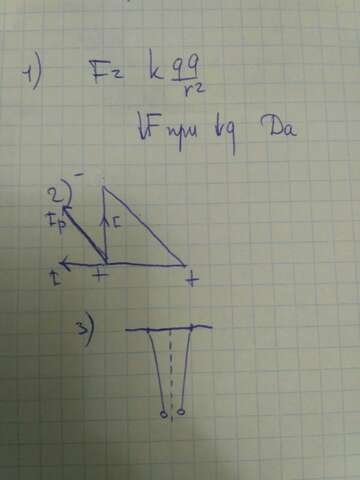 1) F= k qq/r²
↓F при ↓q Да
2) -
Iр I
I + +
3)